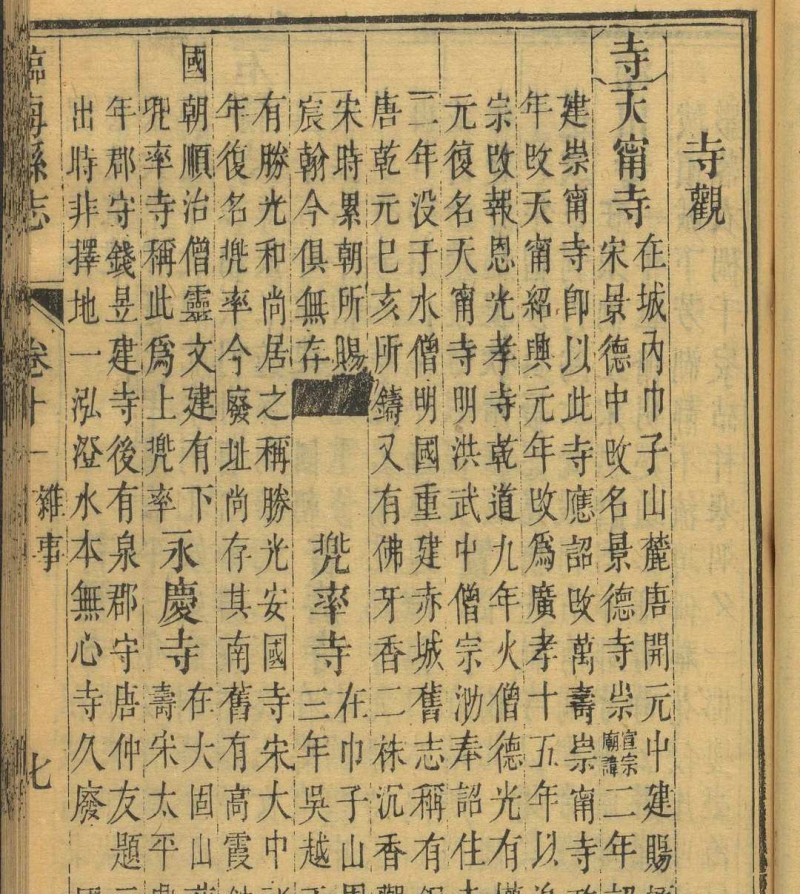 寺觀
寺
天甯寺
在城内巾子山麓唐開元中建賜
宋景德中改名景德寺崇宣宗廟諱二年詔
建崇甯寺卽以此寺應詔改萬壽崇甯寺
年改天甯紹興元年改爲廣孝十五年以
宗改報恩光孝寺乾道九年火僧德光有
元復名天甯寺明洪武中僧宗泐奉詔住
二年没于水僧明國重建赤城舊志稱有
唐乾元巳亥所鑄又有佛牙香二株沉香觀
宋時累朝所賜
宸翰今俱無存
兜率寺
在巾子山
三年吳越
有勝光和尚居之稱勝光安國寺宋大中
年復名兜率今廢址尚存其南舊有高霞
國朝順治僧靈文建有下
兜率寺稱此爲上兜率
永慶寺
在大固山
壽宋太平
年郡守錢昱建寺後有泉郡守唐仲友題
出時非擇地一泓澄水本無心寺久廢
臨海縣志
卷十一
雜事
七